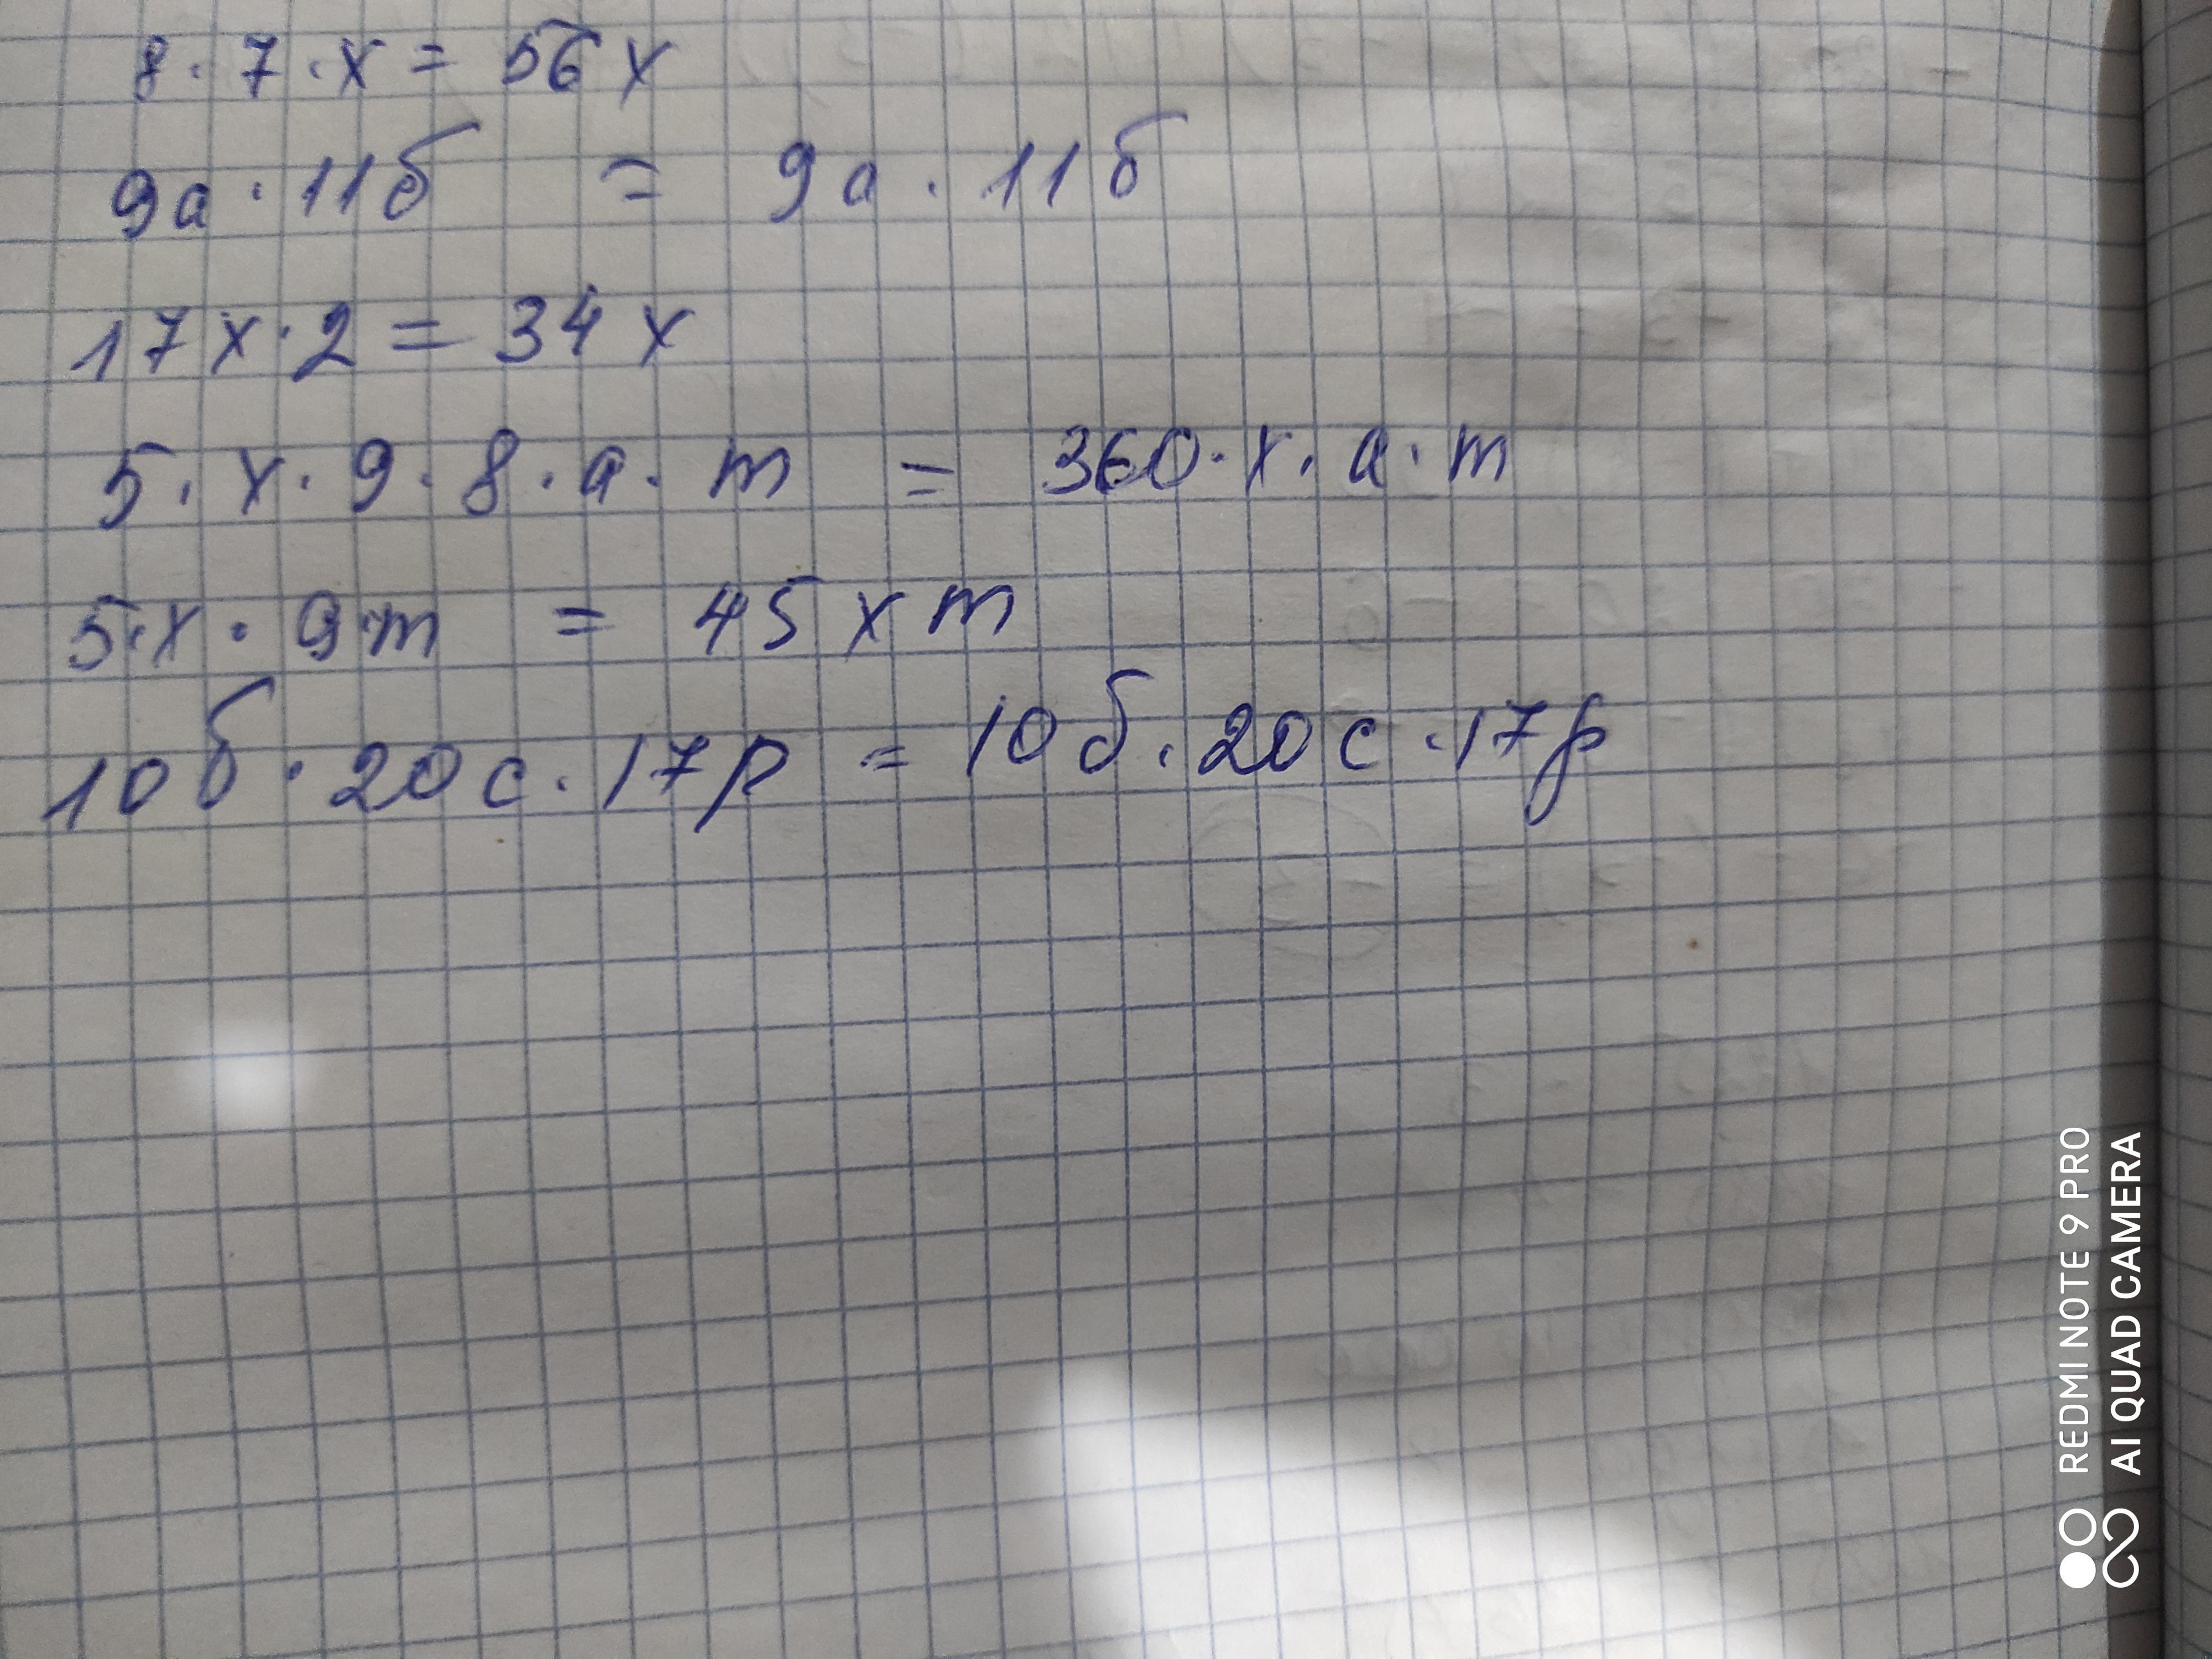 8 · 7 · x = 56 x
9a · 11б = 9a · 11б
17 x · 2 = 34 x
5 · x · 9 · 8 · a · m = 360 · x · a · m
5 · x · 9 · m = 45 x m
10б · 20 c · 17p = 10б · 20 c · 17p
REDMI NOTE 9 PRO
AI QUAD CAMERA